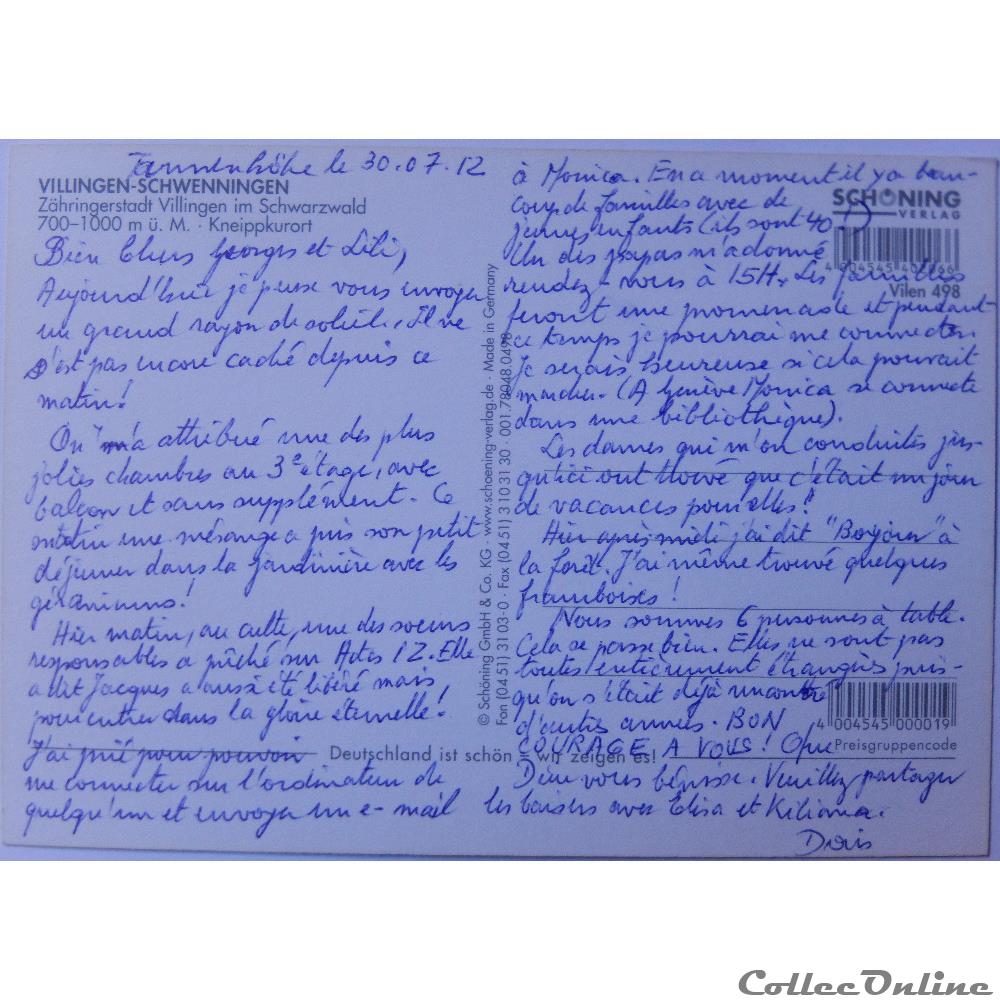 Tannenhöhe le 30.07.12
VILLINGEN-SCHWENNINGEN
Zähringerstadt Villingen im Schwarzwald
700–1000 m ü. M. · Kneippkurort
Bien Chers Georges et Lili,
Aujourd'hui je peux vous envoyer
un grand rayon de soleil. Il ne
s'est pas encore caché depuis ce
matin!
On m'a attribué une des plus
jolies chambres au 3e étage, avec
balcon et sans supplément. Ce
matin une mésange a pris son petit
déjeuner dans la jardinière avec les
géraniums!
Hier matin, au culte, une des soeurs
responsables a prêché sur Actes 12. Elle
a dit Jacques a aussi été libéré mais
pour entrer dans la gloire éternelle!
J'ai prié pour pouvoir
me connecter sur l'ordinateur de
quelqu'un et envoyer un e-mail
Deutschland ist schön - wir zeigen es!
© Schöning GmbH & Co. KG · www.schoening-verlag.de · Made in Germany
Fon (04 51) 31 03-0 · Fax (04 51) 3 10 31 30 · 001.78048.0498
à Monica. En ce moment il y a beau-
coup de familles avec de
jeunes enfants (ils sont 40!)
Un des papas m'a donné
rendez-vous à 15H. Les familles
feront une promenade et pendant
ce temps je pourrai me connecter.
Je serais heureuse si cela pouvait
marcher. (A Genève Monica se connecte
dans une bibliothèque).
Les dames qui m'on conduites jus-
qu'ici ont trouvé que c'était un jour
de vacances pour elles!
Hier après-midi j'ai dit "Bonjour" à
la forêt. J'ai même trouvé quelques
framboises!
Nous sommes 6 personnes à table.
Cela se passe bien. Elles ne sont pas
toutes entièrement étrangères puis-
qu'on s'était déjà rencontré
d'autres années. BON
COURAGE A VOUS! Que
Dieu vous bénisse. Veuillez partager
les baisers avec Elisa et Kiliana.
Doris
SCHÖNING
VERLAG
Vilen 498
4 004545 000019
Preisgruppencode
CollecOnline